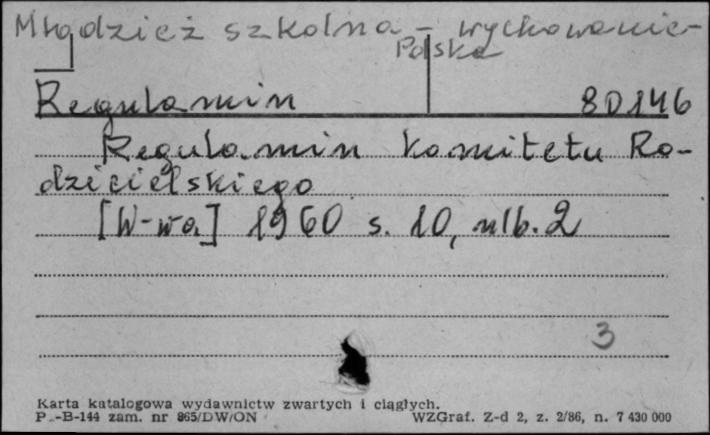 Młodzież szkolna - wychowanie-
Polska
Regulamin 80146
Regulamin Komitetu Ro-
dzicielskiego
[W-wa] 1960 s. 10, nlb. 2
3
Karta katalogowa wydawnictw zwartych i ciągłych.
P.-B-144 zam. nr 865/DW/ON WZGraf. Z-d 2, z. 2/86, n. 7 430 000